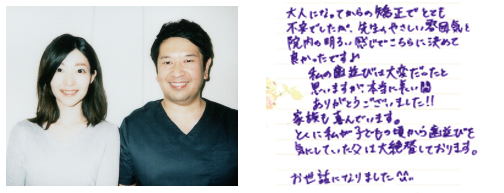 大人になってからの矯正でとても
不安でしたが、先生のやさしい雰囲気と
院内の明るい感じでこちらに決めて
良かったです♪
私の歯並びは大変だったと
思いますが、本当に長い間
ありがとうございました!!
家族も喜んでいます。
とくに私が子どもの頃から歯並びを
気にしていた父は大絶賛しております。
お世話になりました^^